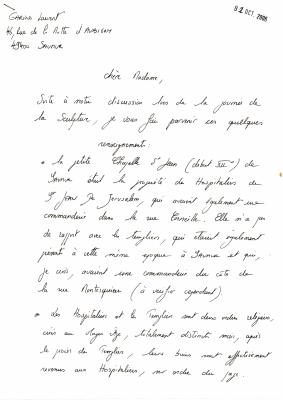 GARINO Laurent
02 OCT. 2006
46, Rue de la Motte d'Aubigny
49400 SAUMUR
chère Madame,
Suite à notre discussion lors de la journée de
la Sculpture, je vous fais parvenir ces quelques
renseignements:
• la petite Chapelle St Jean (début XIIe) de
Saumur était la propriété des Hospitaliers de
St Jean De Jérusalem, qui avaient également une
commanderie dans la rue Corneille. Elle n'a pas
de rapport avec les templiers, qui étaient également
présents à cette même époque à Saumur et qui,
je crois, avaient une commanderie du côté de
la rue Montesquieu (à vérifier cependant)
• Les Hospitaliers et les Templiers sont deux ordres religieux,
créés au Moyen Âge, totalement distincts mais, après
le procès des Templiers, leurs biens sont effectivement
revenus aux Hospitaliers, sur ordre du pape.